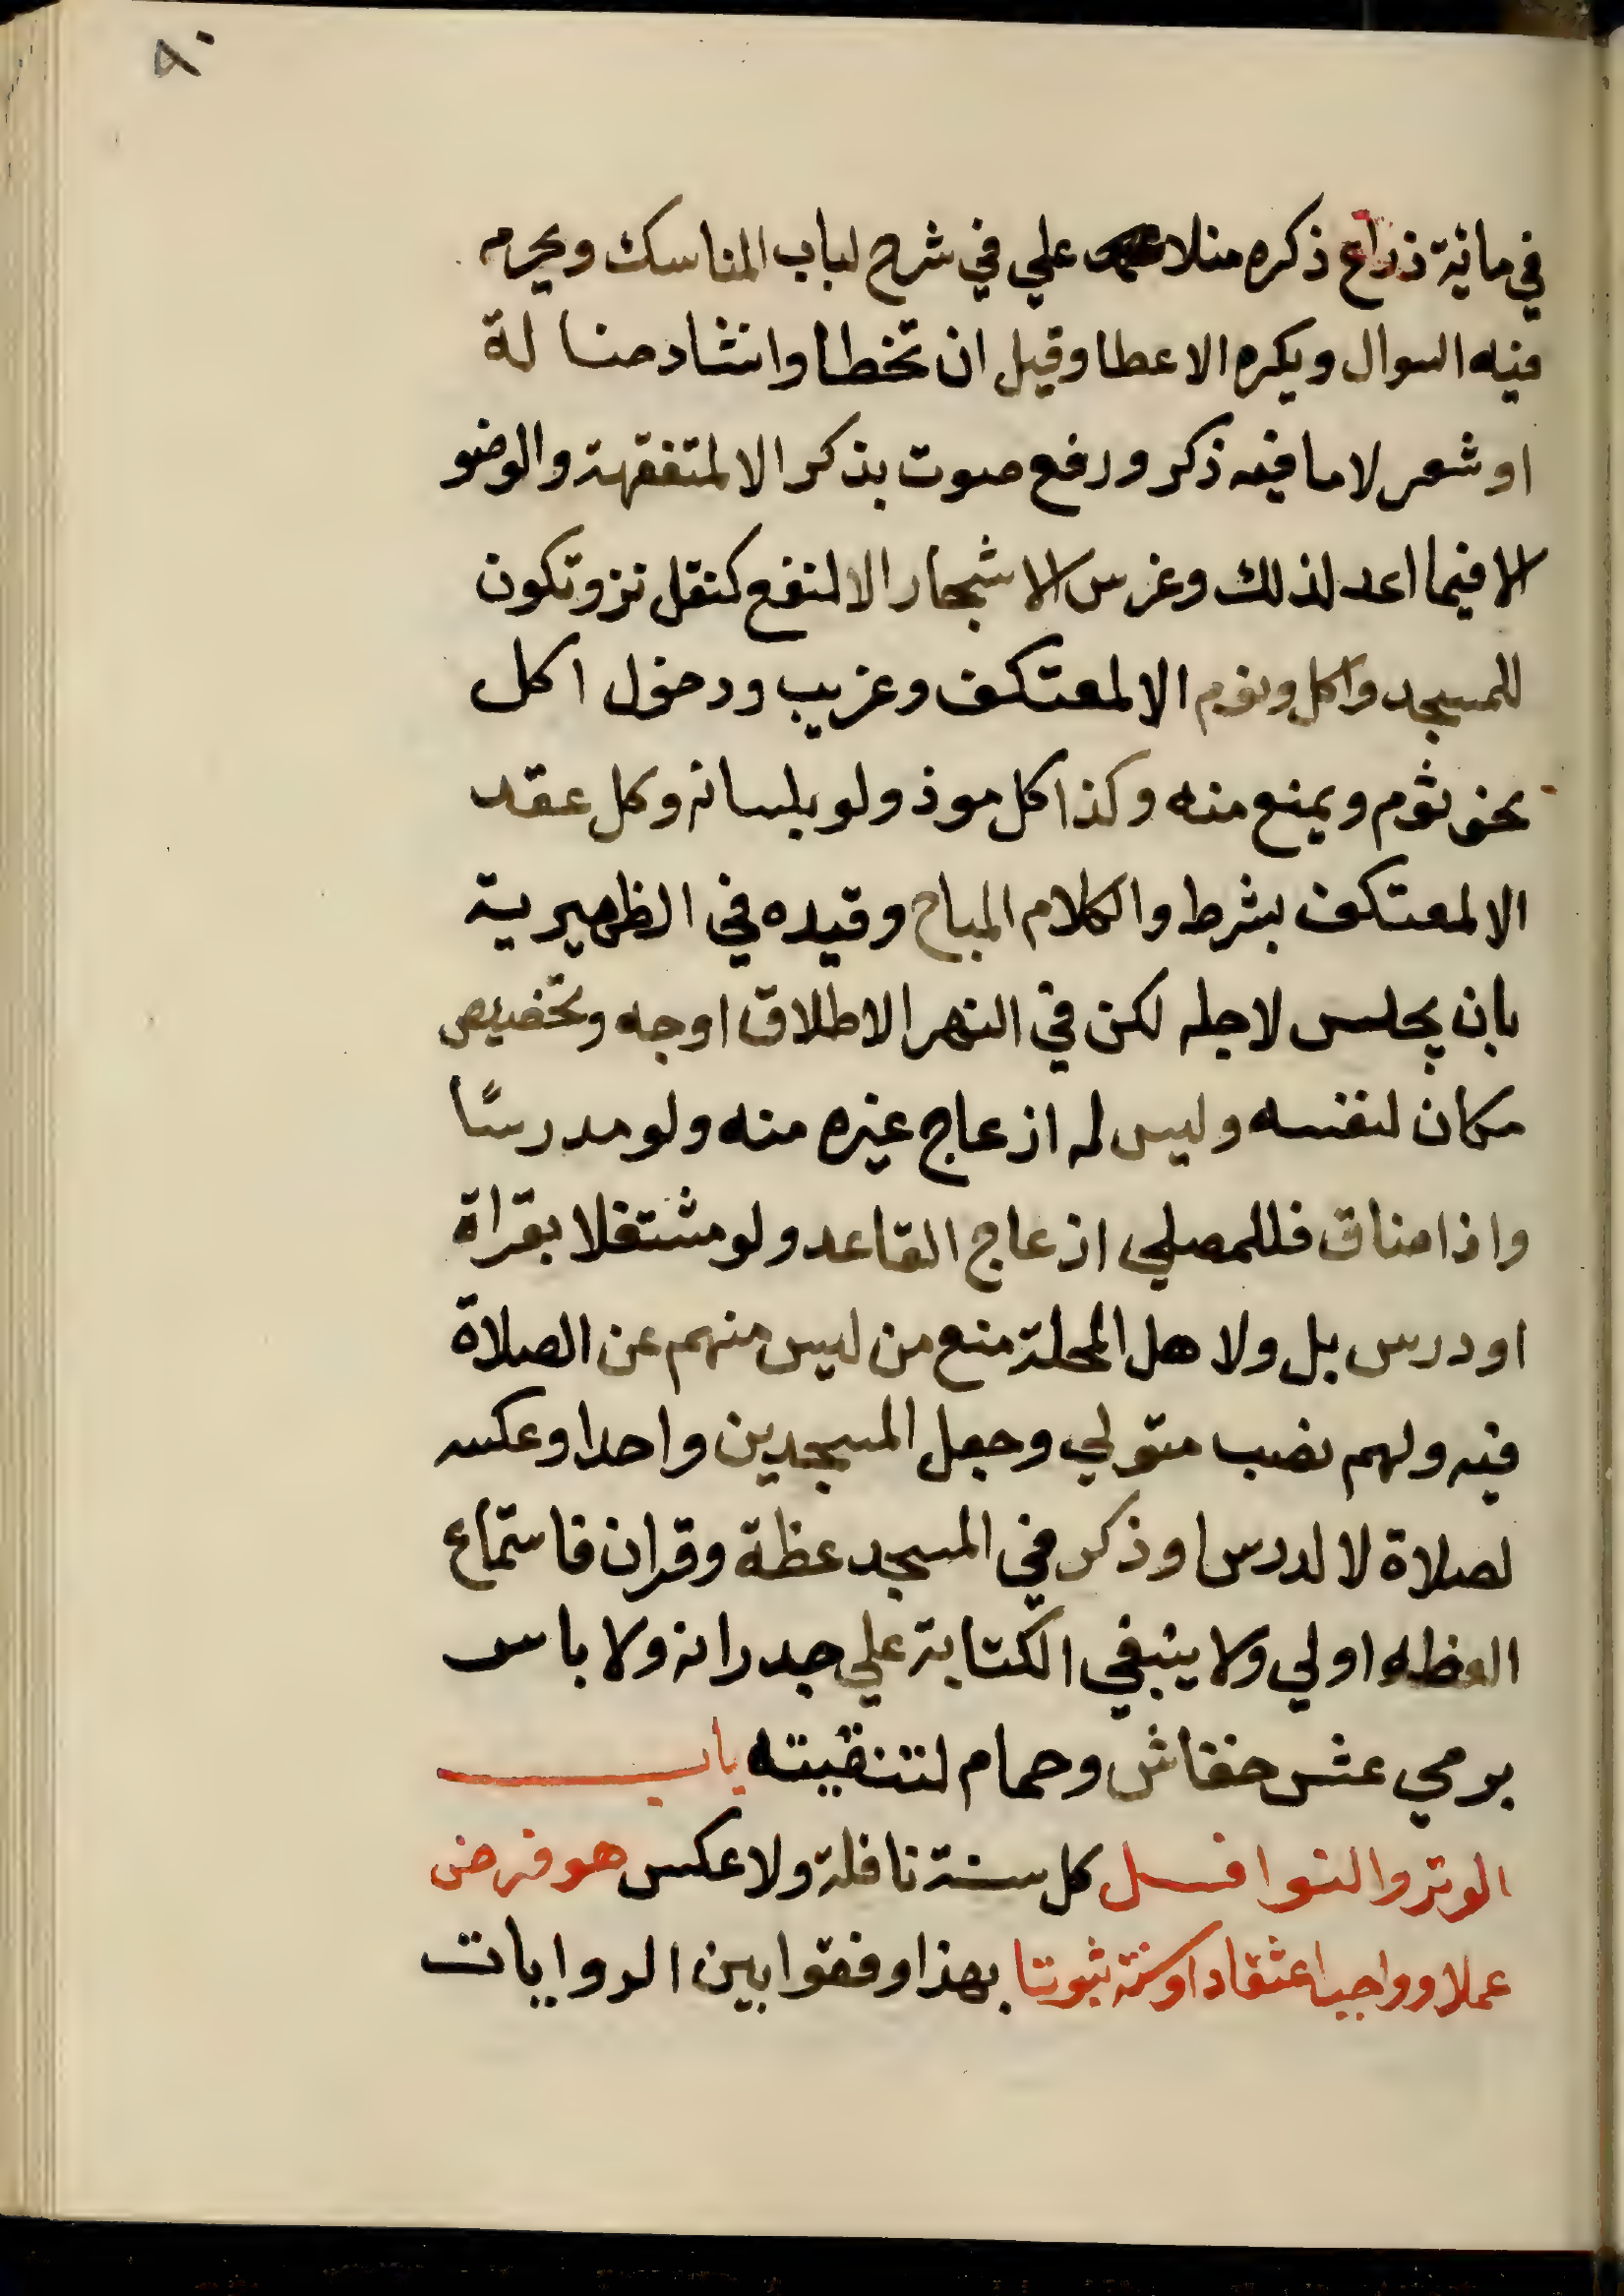 ٨٠
في مائة ذراع ذكره منلا علي في شرح لباب المناسك ويحرم
فيه السوال ويكره الاعطا وقيل ان تخطا وانشاد ضالة
او شعر لا ما فيه ذكر ورفع صوت بذكر الا لمتفقهة والوضو
الا فيما اعد لذلك وغرس الاشجار الا لنفع كتقل نز وتكون
للمسجد واكل ونوم الا لمعتكف وغريب ودخول اكل
نحو ثوم ويمنع منه وكذا كل موذ ولو بلسانه وكل عقد
الا لمعتكف بشرط والكلام المباح وقيده في الظهيرية
بان يجلس لاجله لكن في النهر الاطلاق اوجه وتخصيص
مكان لنفسه وليس له ازعاج غيره منه ولو مدرسًا
واذا ضاق فللمصلي ازعاج القاعد ولو مشتغلا بقراة
او درس بل ولاهل المحلة منع من ليس منهم عن الصلاة
فيه ولهم نصب متولي وجعل المسجدين واحدا وعكسه
لصلاة لا لدرس او ذكر في المسجد عظة وقران فاستماع
العظه اولي ولا ينبغي الكتابة علي جدرانه ولا باس
برمي عش خفاش وحمام لتنقيته باب
الوتر والنوافل كل سنة نافلة ولا عكس هو فرض
عملا وواجب اعتقادا وسنة ثبوتا بهذا وفقوا بين الروايات